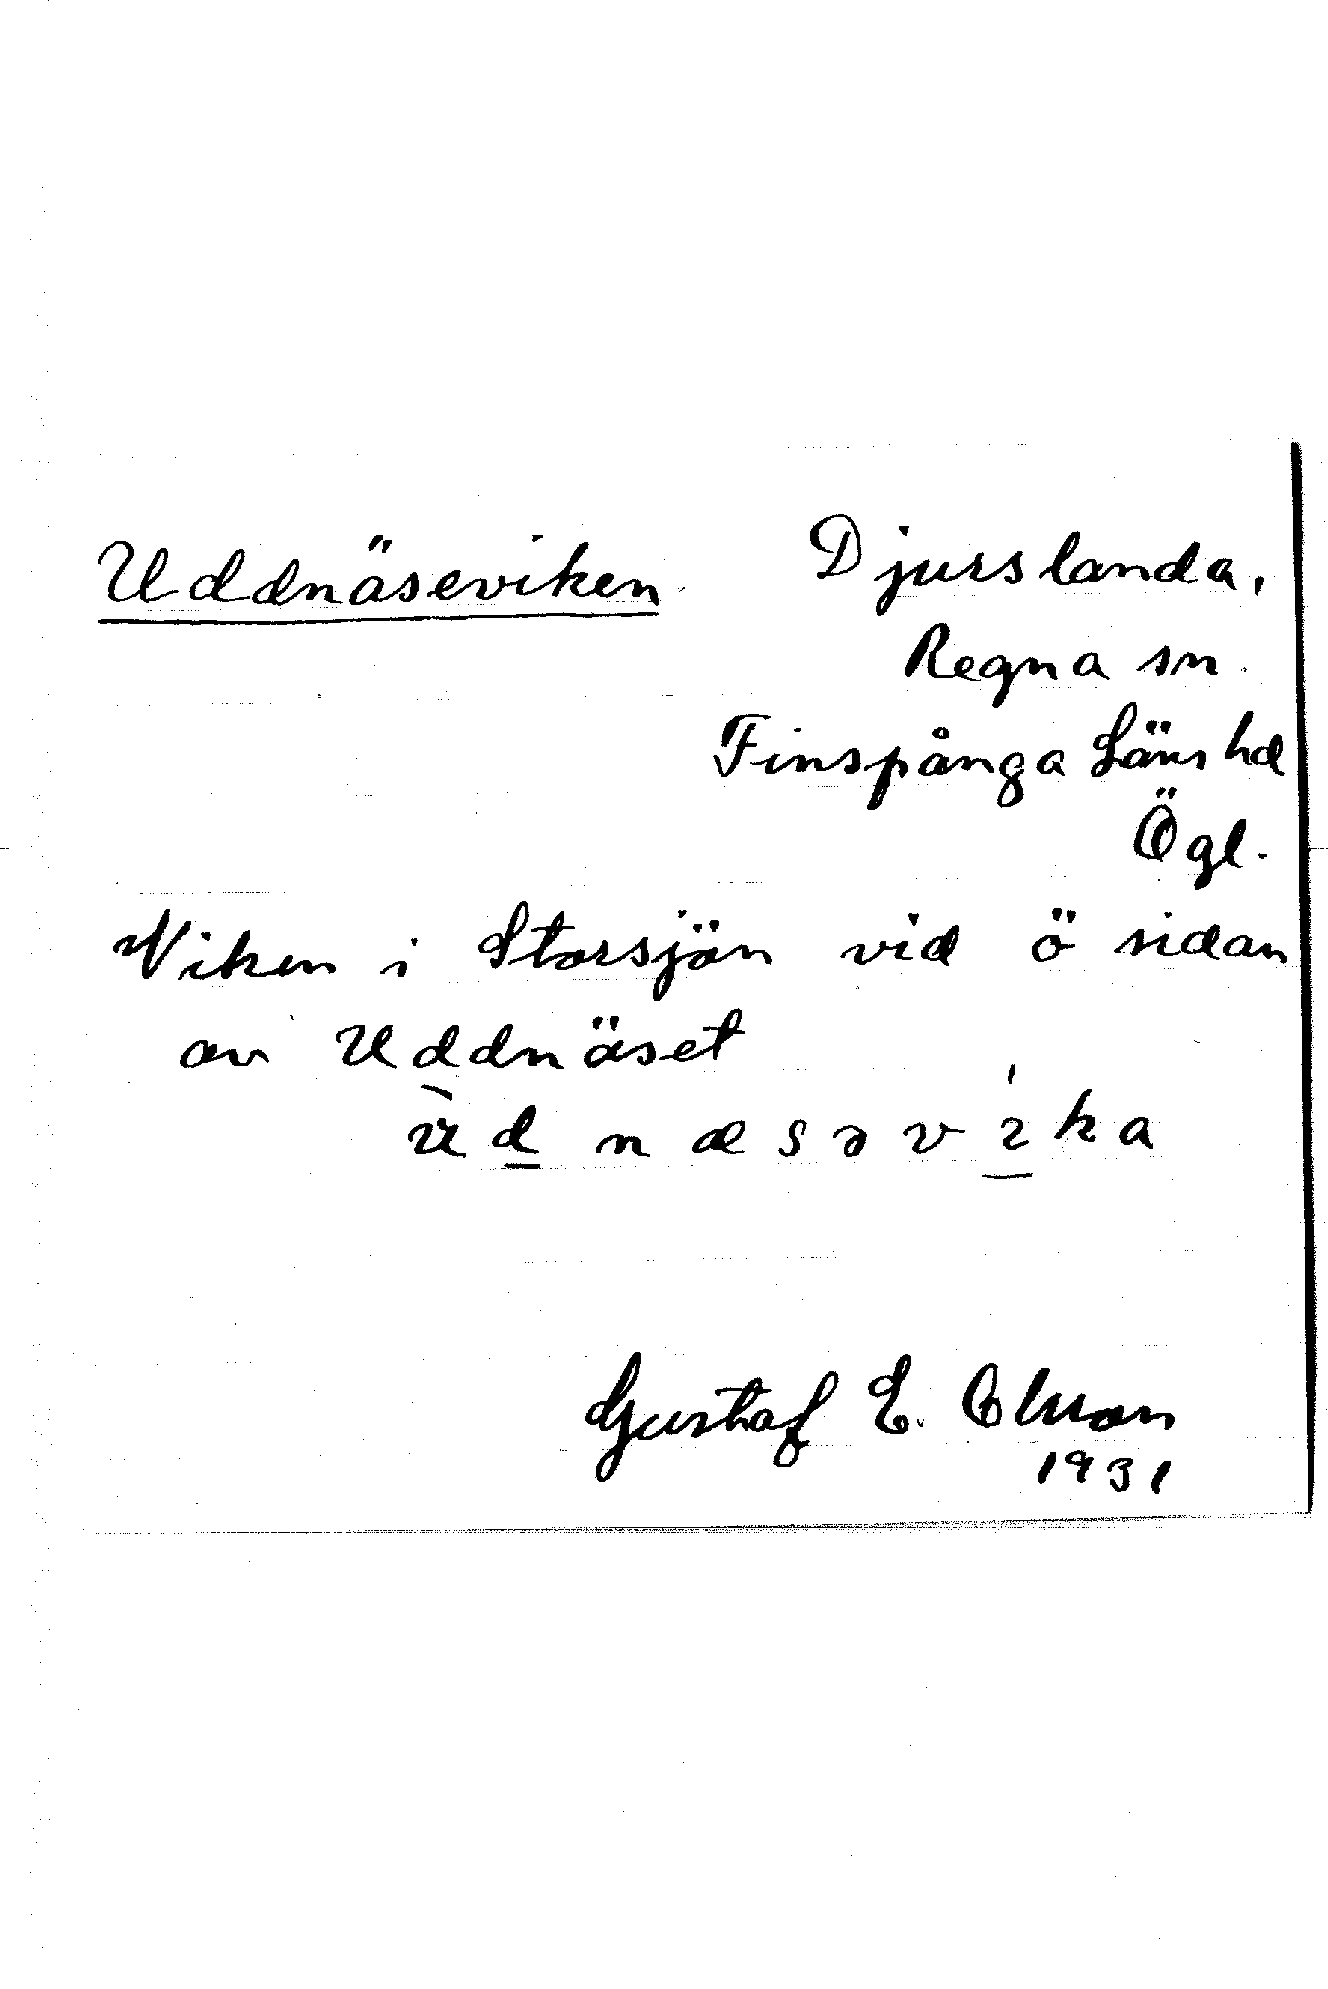 Uddnäseviken Djurslanda,
Regna sn.
Finspånga Läns hd
Ögl.
Viken i Storsjön vid ö sidan
av Uddnäset
ùd̲næsəví̲ka
Gustaf E. Olsson
1931